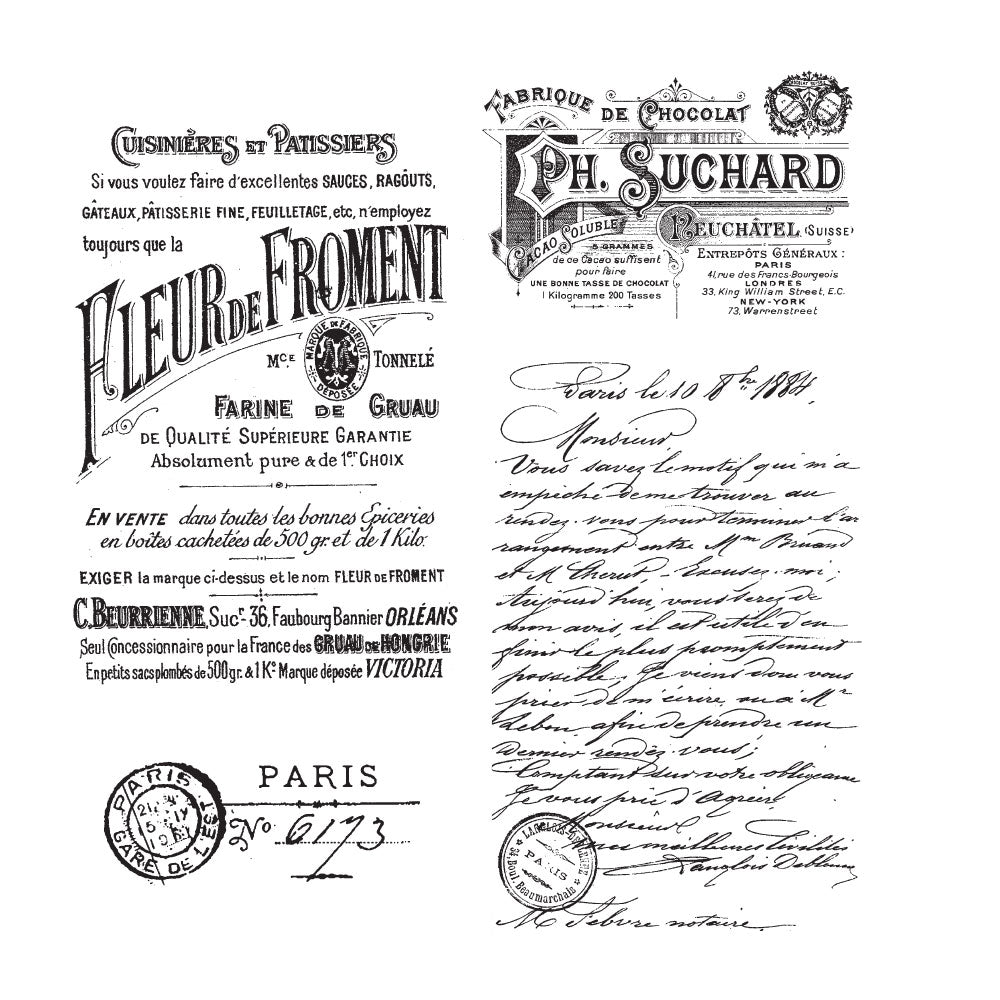 CUISINIÈRES ET PATISSIERS
Si vous voulez faire d'excellentes SAUCES, RAGOÛTS,
GÂTEAUX, PÂTISSERIE FINE, FEUILLETAGE, etc, n'employez
toujours que la
FLEUR DE FROMENT
MCE TONNELÉ
MARQUE DE FABRIQUE
DÉPOSÉE
FARINE DE GRUAU
DE QUALITÉ SUPÉRIEURE GARANTIE
Absolument pure & de 1er CHOIX
EN VENTE dans toutes les bonnes Epiceries
en boîtes cachetées de 500 gr. et de 1 Kilo.
EXIGER la marque ci-dessus et le nom FLEUR DE FROMENT
C. BEURRIENNE, Sucr- 36, Faubourg Bannier ORLÉANS
Seul Concessionnaire pour la France des GRUAU DE HONGRIE
En petits sacs plombés de 500 gr. & 1 Ko Marque déposée VICTORIA
PARIS
GARE DE L'EST
PARIS
No 6173
FABRIQUE DE CHOCOLAT
PH. SUCHARD
CACAO SOLUBLE
NEUCHÂTEL (SUISSE)
5 GRAMMES
de ce Cacao suffisent
pour faire
UNE BONNE TASSE DE CHOCOLAT
1 Kilogramme 200 Tasses
ENTREPÔTS GÉNÉRAUX :
PARIS
41, rue des Francs-Bourgeois
LONDRES
33, King William Street, E.C.
NEW-YORK
73, Warrenstreet
Paris le 10 8bre 1884.
Monsieur
Vous savez le motif qui m'a
empiché de me trouver au
rendez-vous pour terminer l'ar
rangement entre Mm Bruand
et M Cherut, - Excusez-moi;
Aujourd'hui, vous serez de
mon avis, il est utile d'en
finir le plus promptement
possible, Je viens donc vous
prier de m'écrire, ou à Mr
Lebon, afin de prendre un
dernier rendez-vous;
Comptant sur votre obligeance
Je vous prie d'Agréer,
Monsieur
mes meilleures Civilités
Langlois
PARIS
34 Boul. Beaumarchais
M Lebvre notaire.